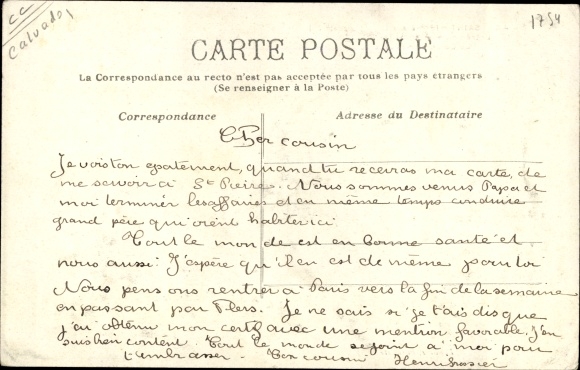 CC
Calvados
1754
CARTE POSTALE
La Correspondance au recto n'est pas acceptée par tous les pays étrangers
(Se renseigner à la Poste)
Correspondance
Adresse du Destinataire
Cher cousin
Je vois ton epatement, quand tu receveras ma carte, de
me savoir à St Pierre. Nous sommes venus Papa et
moi terminer les affaires et en même temps conduire
grand père qui vient habiter ici.
Tout le monde est en bonne santé et
nous aussi. J'espère qu'il en est de même pour toi
Nous pensons rentrer à Paris vers la fin de la semaine
en passant par Flers. Je ne sais si je t'ais dis que
j'ai obtenu mon certif avec une mention favorable. J'en
suis bien content. Tout le monde se joint à moi pour
t'embrasser. Ton cousin Henri